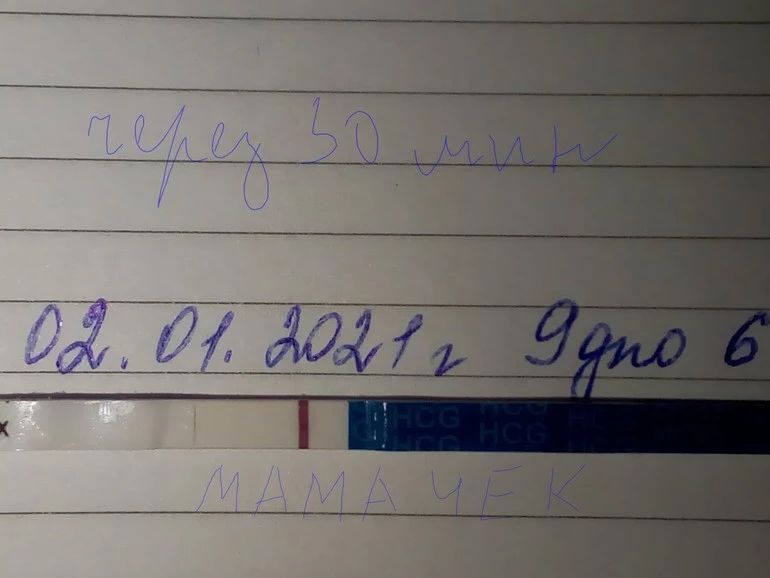 через 30 мин
02.01.2021 г 9 дпо 6
х
HCG HCG HCG
HCG HCG
МАМА ЧЕК